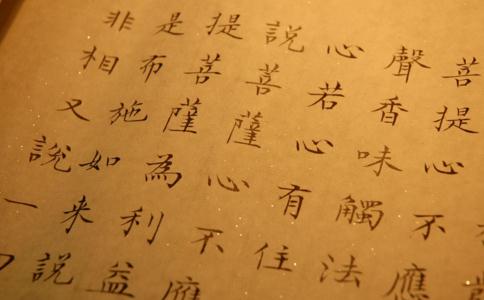 菩提心不應
聲香味觸法
心若心有住
說菩薩心不應
提菩薩為利益
是布施如来說
非相又說一